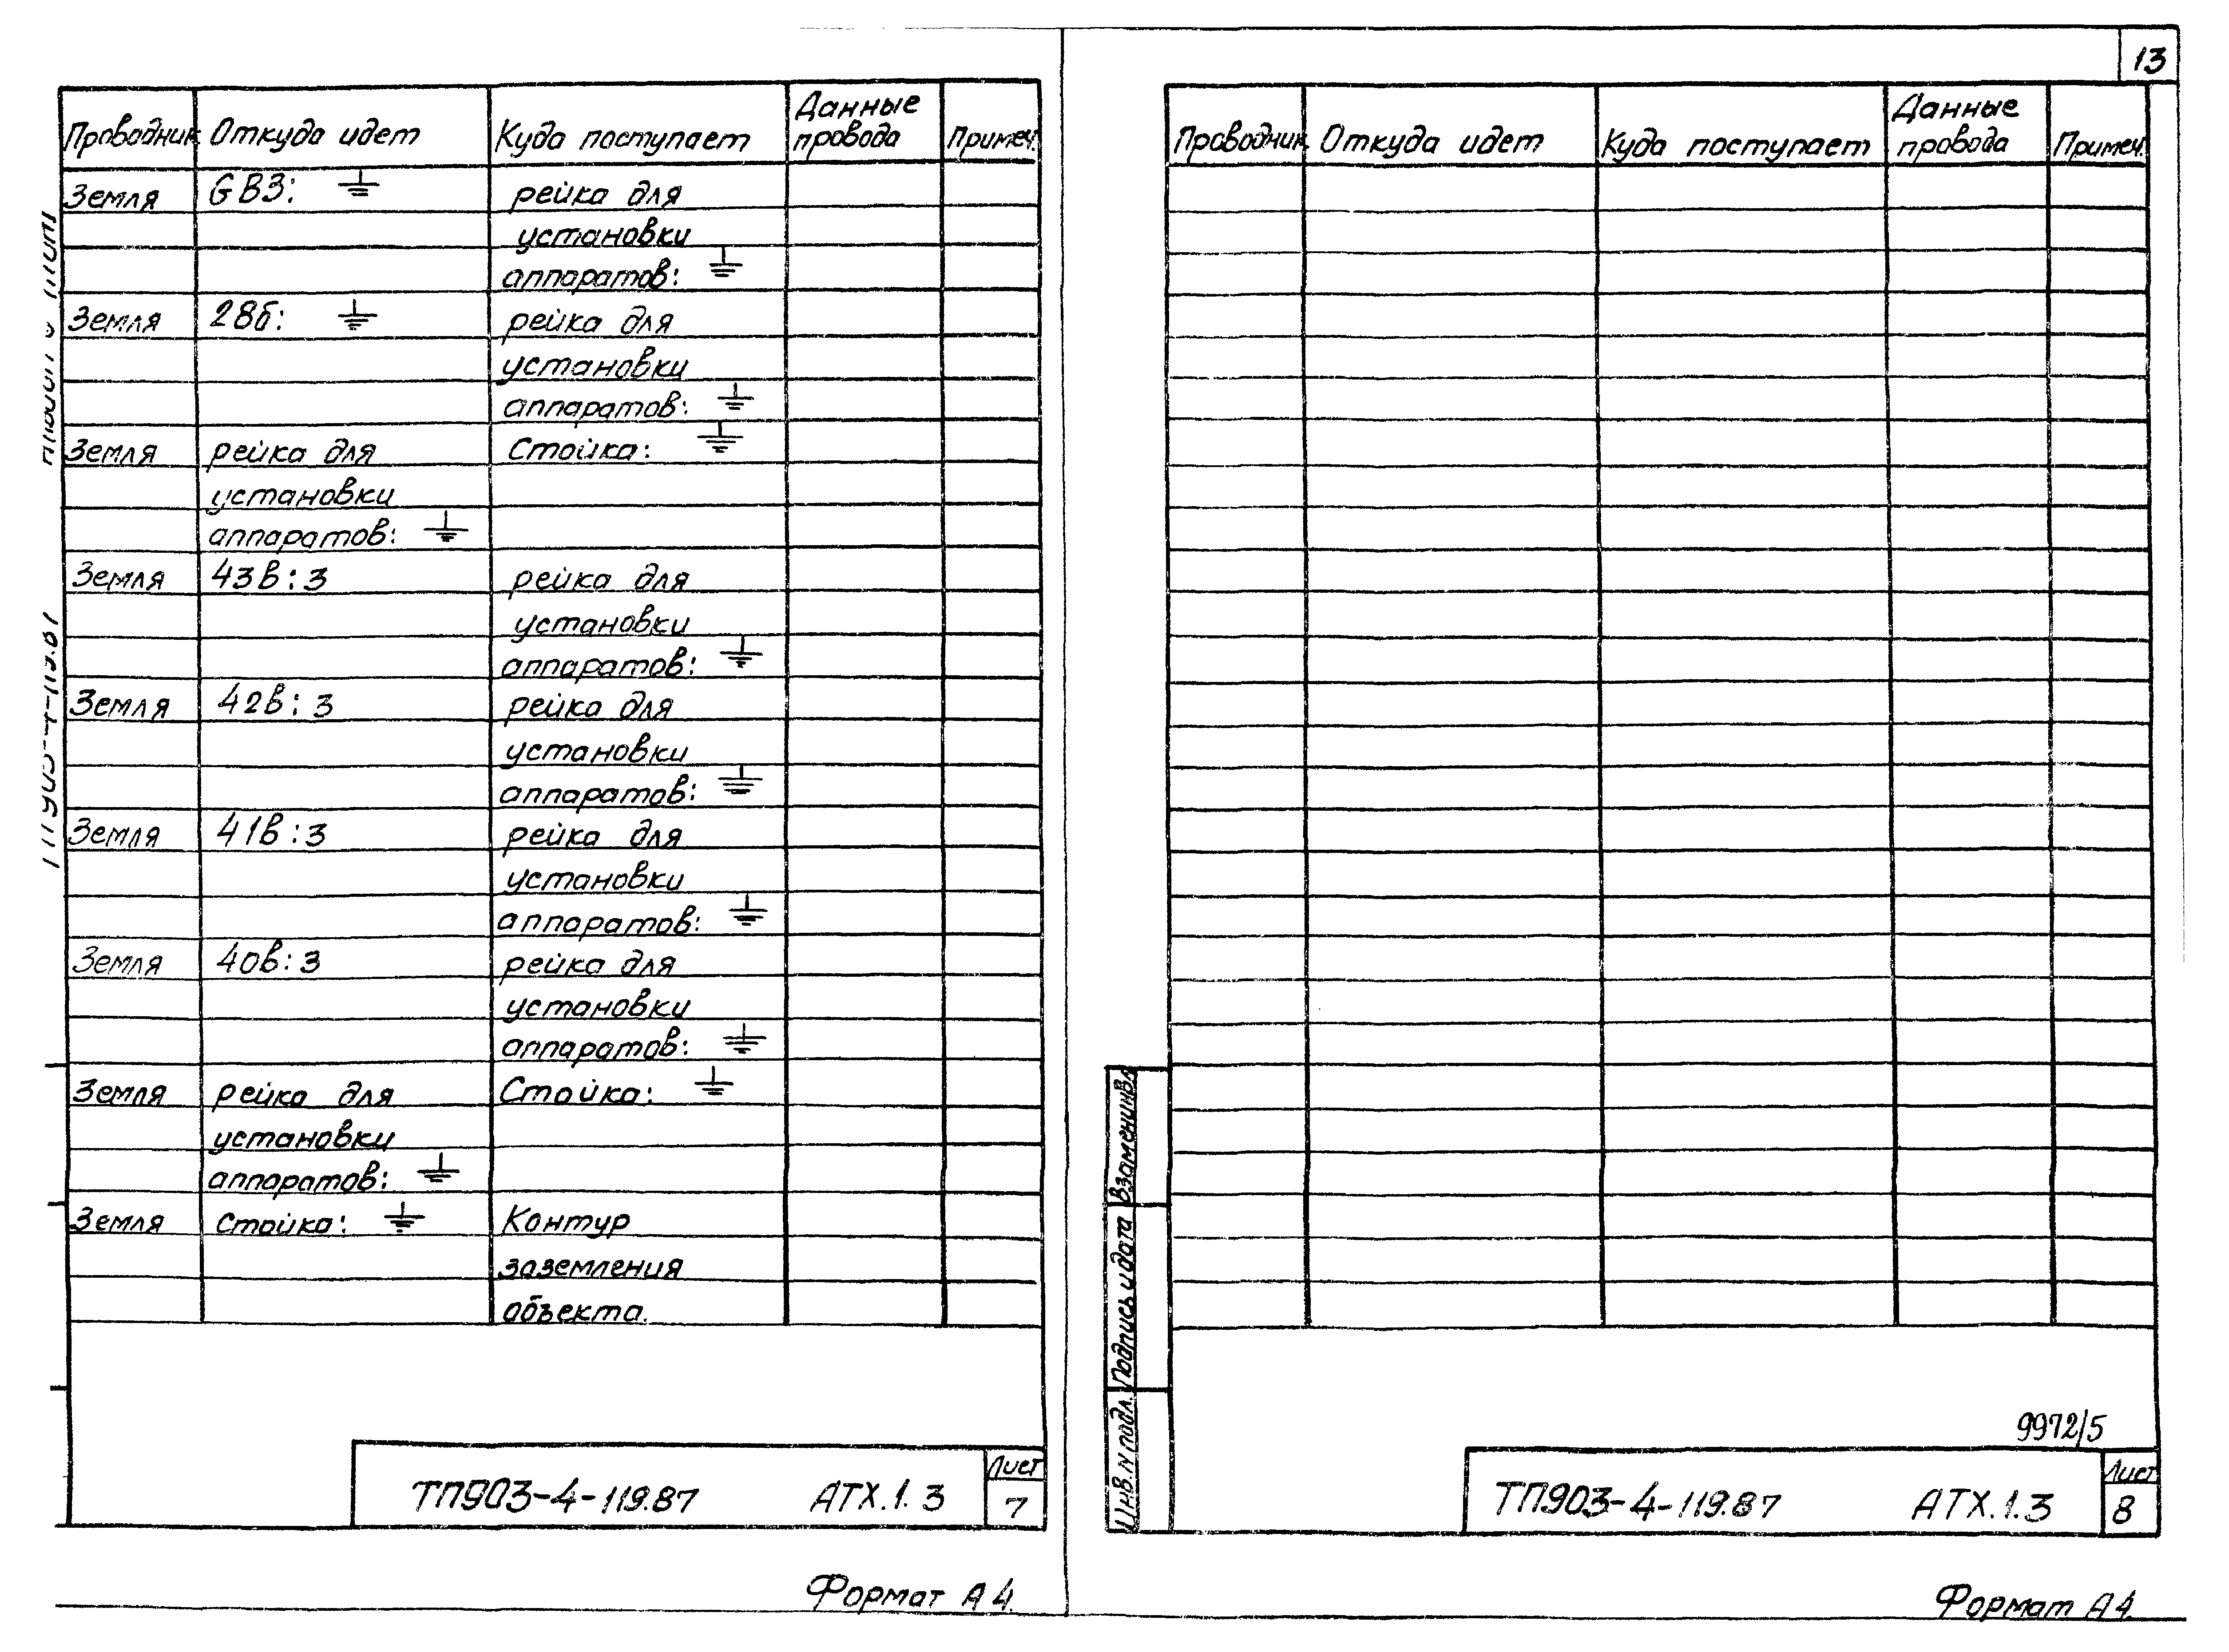 13
Проводник Откуда идет Куда поступает Данные провода Примеч.
Земля GB3: ⏚ рейка для
установки
аппаратов: ⏚
Земля 28б: ⏚ рейка для
установки
аппаратов: ⏚
Земля рейка для Стойка: ⏚
установки
аппаратов: ⏚
Земля 43в:3 рейка для
установки
аппаратов: ⏚
Земля 42в:3 рейка для
установки
аппаратов: ⏚
Земля 41в:3 рейка для
установки
аппаратов: ⏚
Земля 40в:3 рейка для
установки
аппаратов: ⏚
Земля рейка для Стойка: ⏚
установки
аппаратов: ⏚
Земля Стойка: ⏚ Контур
заземления
объекта.
ТП903-4-119.87 АТХ.1.3 Лист 7
Формат А4.
Проводник Откуда идет Куда поступает Данные провода Примеч.
Взамен инв.
Подпись и дата
Инв.N подл.
9972/5
ТП903-4-119.87 АТХ.1.3 Лист 8
Формат А4.